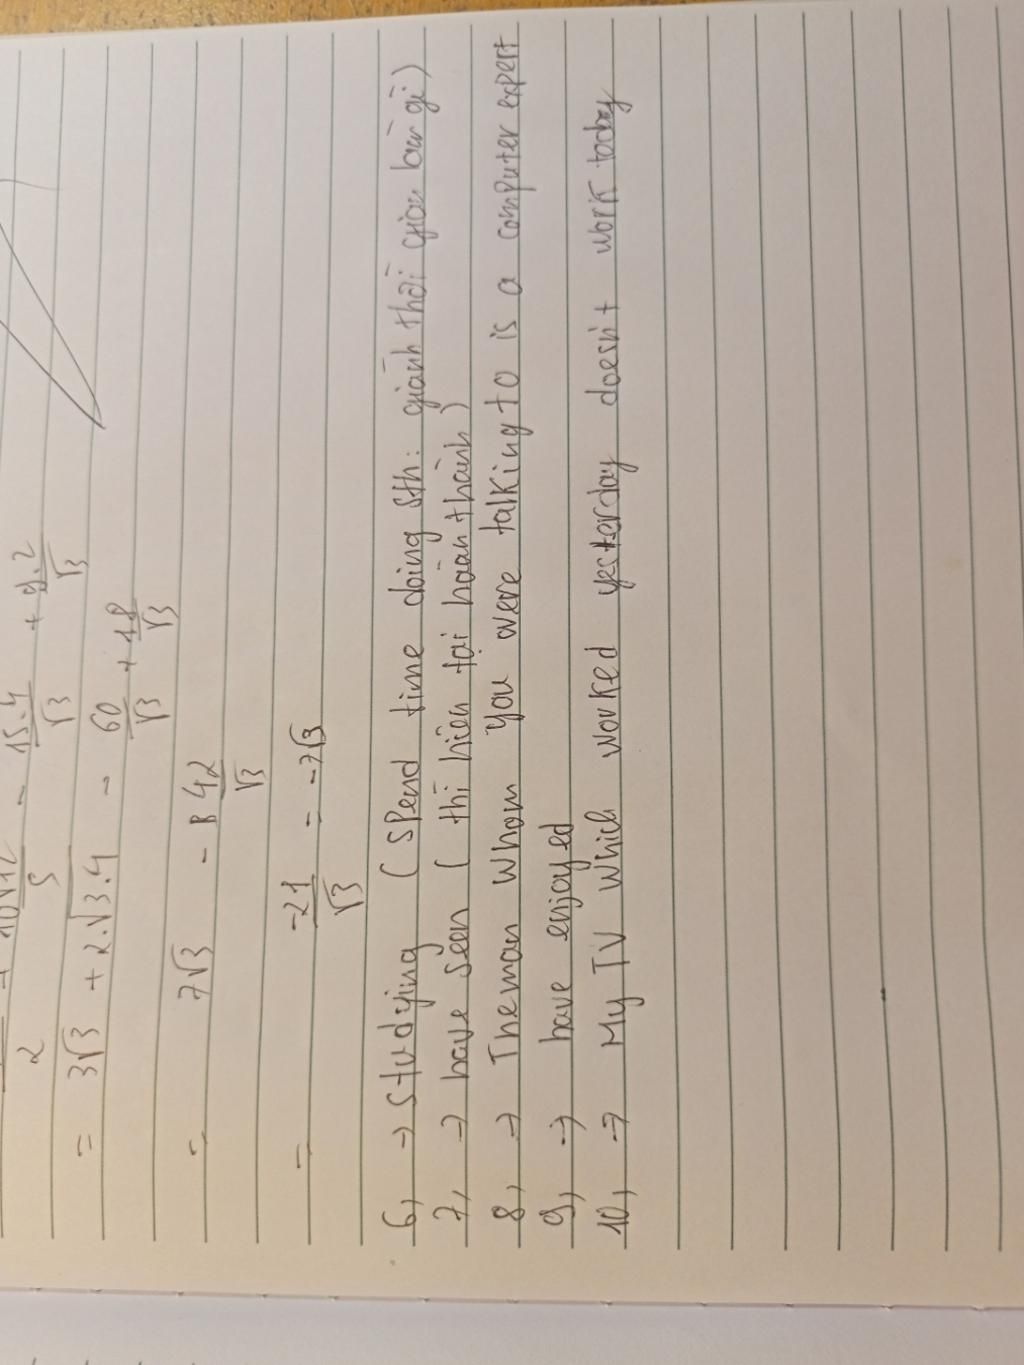 2 5 - 15.4/√3 + 9.2/√3
= 3√3 + 2.√3.4 - 60/√3 + 18/√3
= 7√3 - 42/√3
= -21/√3 = -7√3
6, → studying (spend time doing sth: giành thời gian làm gì)
7, → have seen (thì hiện tại hoàn thành)
8, → The man whom you were talking to is a computer expert
9, → have enjoyed
10, → My TV which worked yesterday doesn't work today